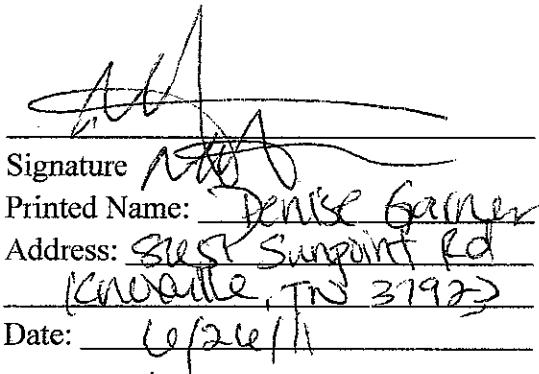 Signature
Printed Name: Denise Garner
Address: Sunpoint Rd
Knoxville, TN 37923
Date: 6/26/11